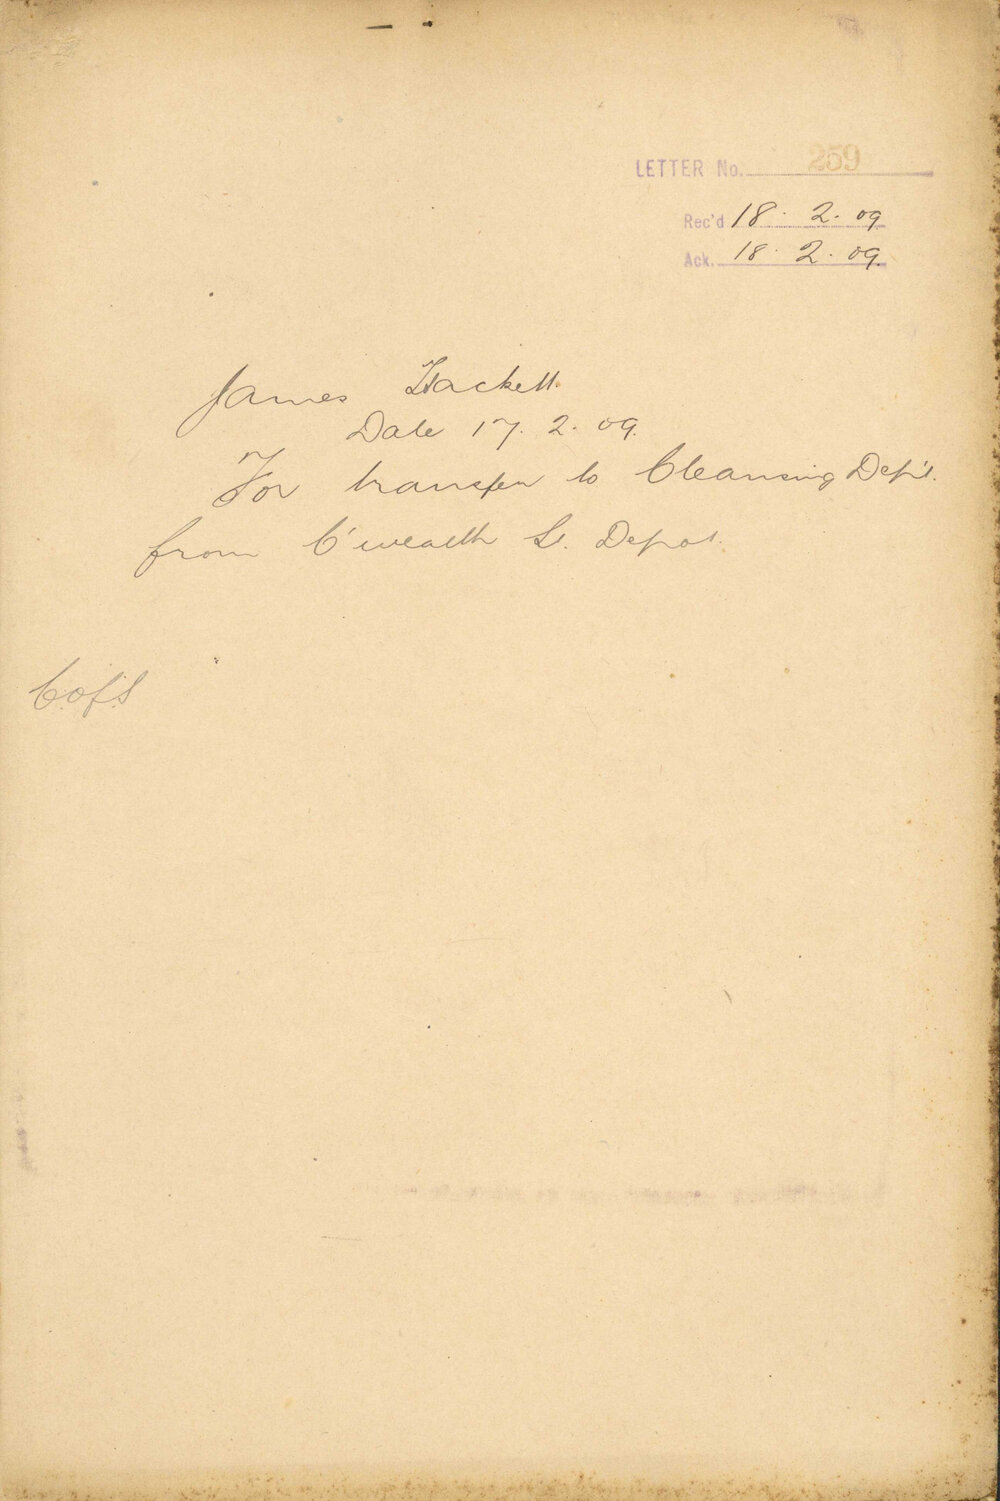 LETTER No. 259
Rec'd 18. 2. 09
Ack. 18. 2. 09.
James Hackett.
Date 17. 2. 09.
For transfer to Cleansing Dep't.
from C'wealth St. Depot.
C.of.S